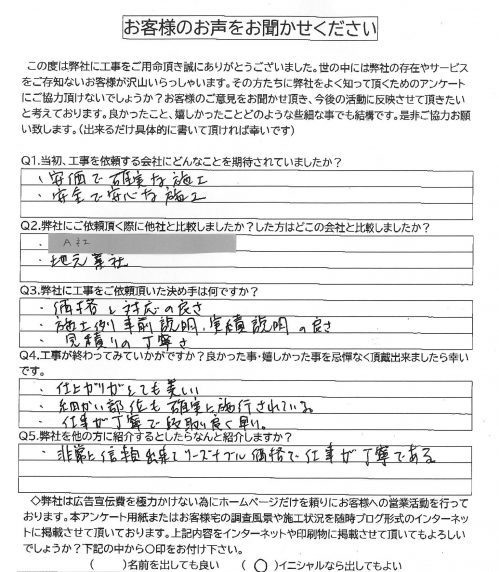 お客様のお声をお聞かせください
この度は弊社に工事をご用命頂き誠にありがとうございました。世の中には弊社の存在やサービス
をご存知ないお客様が沢山いらっしゃいます。その方たちに弊社をよく知って頂くためのアンケート
にご協力頂けないでしょうか？お客様のご意見をお聞かせ頂き、今後の活動に反映させて頂きたい
と考えております。良かったこと、嬉しかったことどのような些細な事でも結構です。是非ご協力お願
い致します。（出来るだけ具体的に書いて頂ければ幸いです）
Q1.当初、工事を依頼する会社にどんなことを期待されていましたか？
・安価で確実な施工
・安全で安心な施工
Q2.弊社にご依頼頂く際に他社と比較しましたか？した方はどこの会社と比較しましたか？
・A社
・地元業社
Q3.弊社に工事をご依頼頂いた決め手は何ですか？
・価格と対応の良さ
・施工例 事前説明、実績説明の良さ
・見積りの丁寧さ
Q4.工事が終わってみていかがですか？良かった事・嬉しかった事を忌憚なく頂戴出来ましたら幸い
です。
・仕上がりがとても美しい
・細かい部位も確実に施行されている。
・仕事が丁寧で段取り良く早い。
Q5.弊社を他の方に紹介するとしたらなんと紹介しますか？
・非常に信頼出来てリーズナブル価格で仕事が丁寧である
◇弊社は広告宣伝費を極力かけない為にホームページだけを頼りにお客様への営業活動を行って
おります。本アンケート用紙またはお客様宅の調査風景や施工状況を随時ブログ形式のインターネッ
トに掲載させて頂いております。上記内容をインターネットや印刷物に掲載させて頂いてもよろしい
でしょうか？下記の中から〇印をお付け下さい。
（　　）名前を出しても良い　（〇）イニシャルなら出してもよい